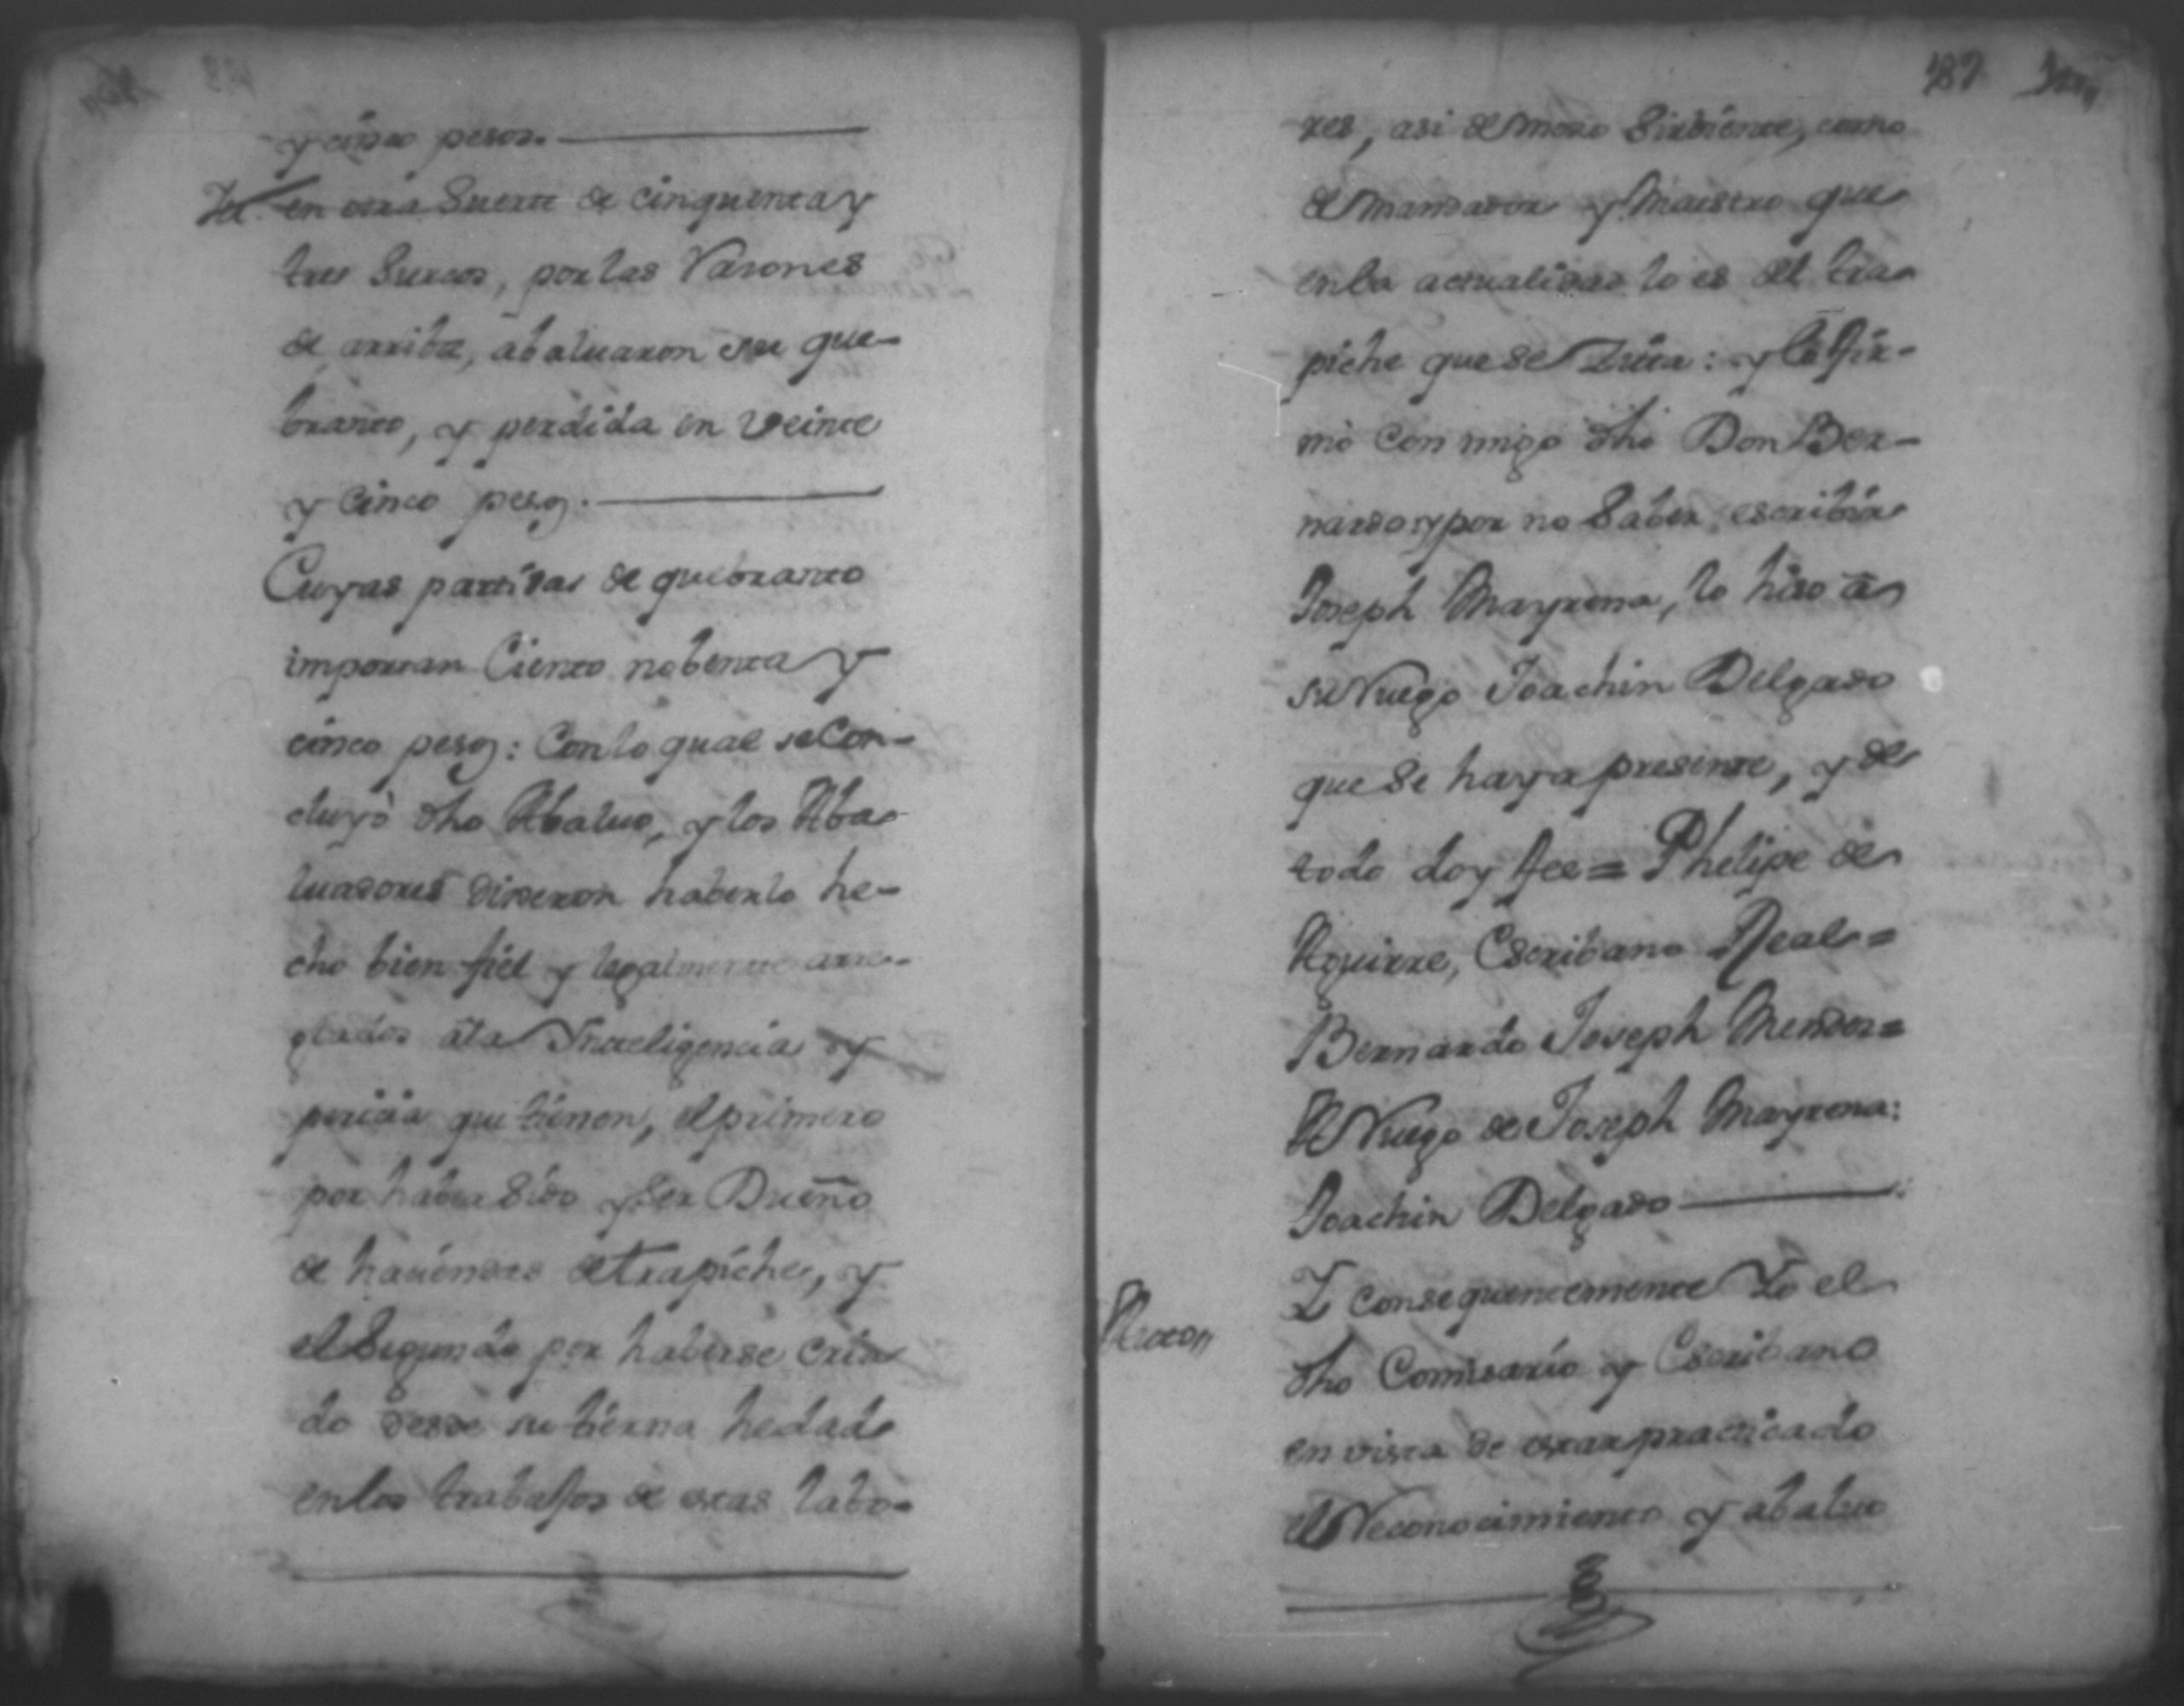 y cinco pesos.
Yd. en otra Suerte de cinquenta y
tres Surcos, por las Rasones
de arriba, abaluaron su que-
branto, y perdida en veinte
y cinco pesos.
Cuyas partidas de quebranto
importan Ciento nobenta y
cinco pesos: Con lo qual se Con-
cluyò dho Abaluo, y los Aba-
luadores dixeron haberlo he-
cho bien fiel y legalmente arre-
glados à la Ynteligencia y
pericia que tienen, el primero
por haber Sido y Ser Dueño
de haciendas de trapiches, y
el Segundo por haberse Cria
do desde su tierna hedad
en los trabajos de estas labo-
187
res, asi de moso Sirbiente, como
de mandador y Maestro que
en la actualidad lo es del tra-
piche que se : y lo fir-
mò con migo dho Don Ber-
nardo, y por no Saber escribir
Joseph Mayrena, lo hiso à
su Ruego Joachin Delgado
que se haya presente, y de
todo doy fee = Phelipe de
Aguirre, Escribano Real =
Bernardo Joseph Mendes =
A Ruego de Joseph Mayrena:
Joachin Delgado
Y consequentemente Yo el
dho Comisario y Escribano
en vista de estar practicado
el Reconocimiento y abaluo